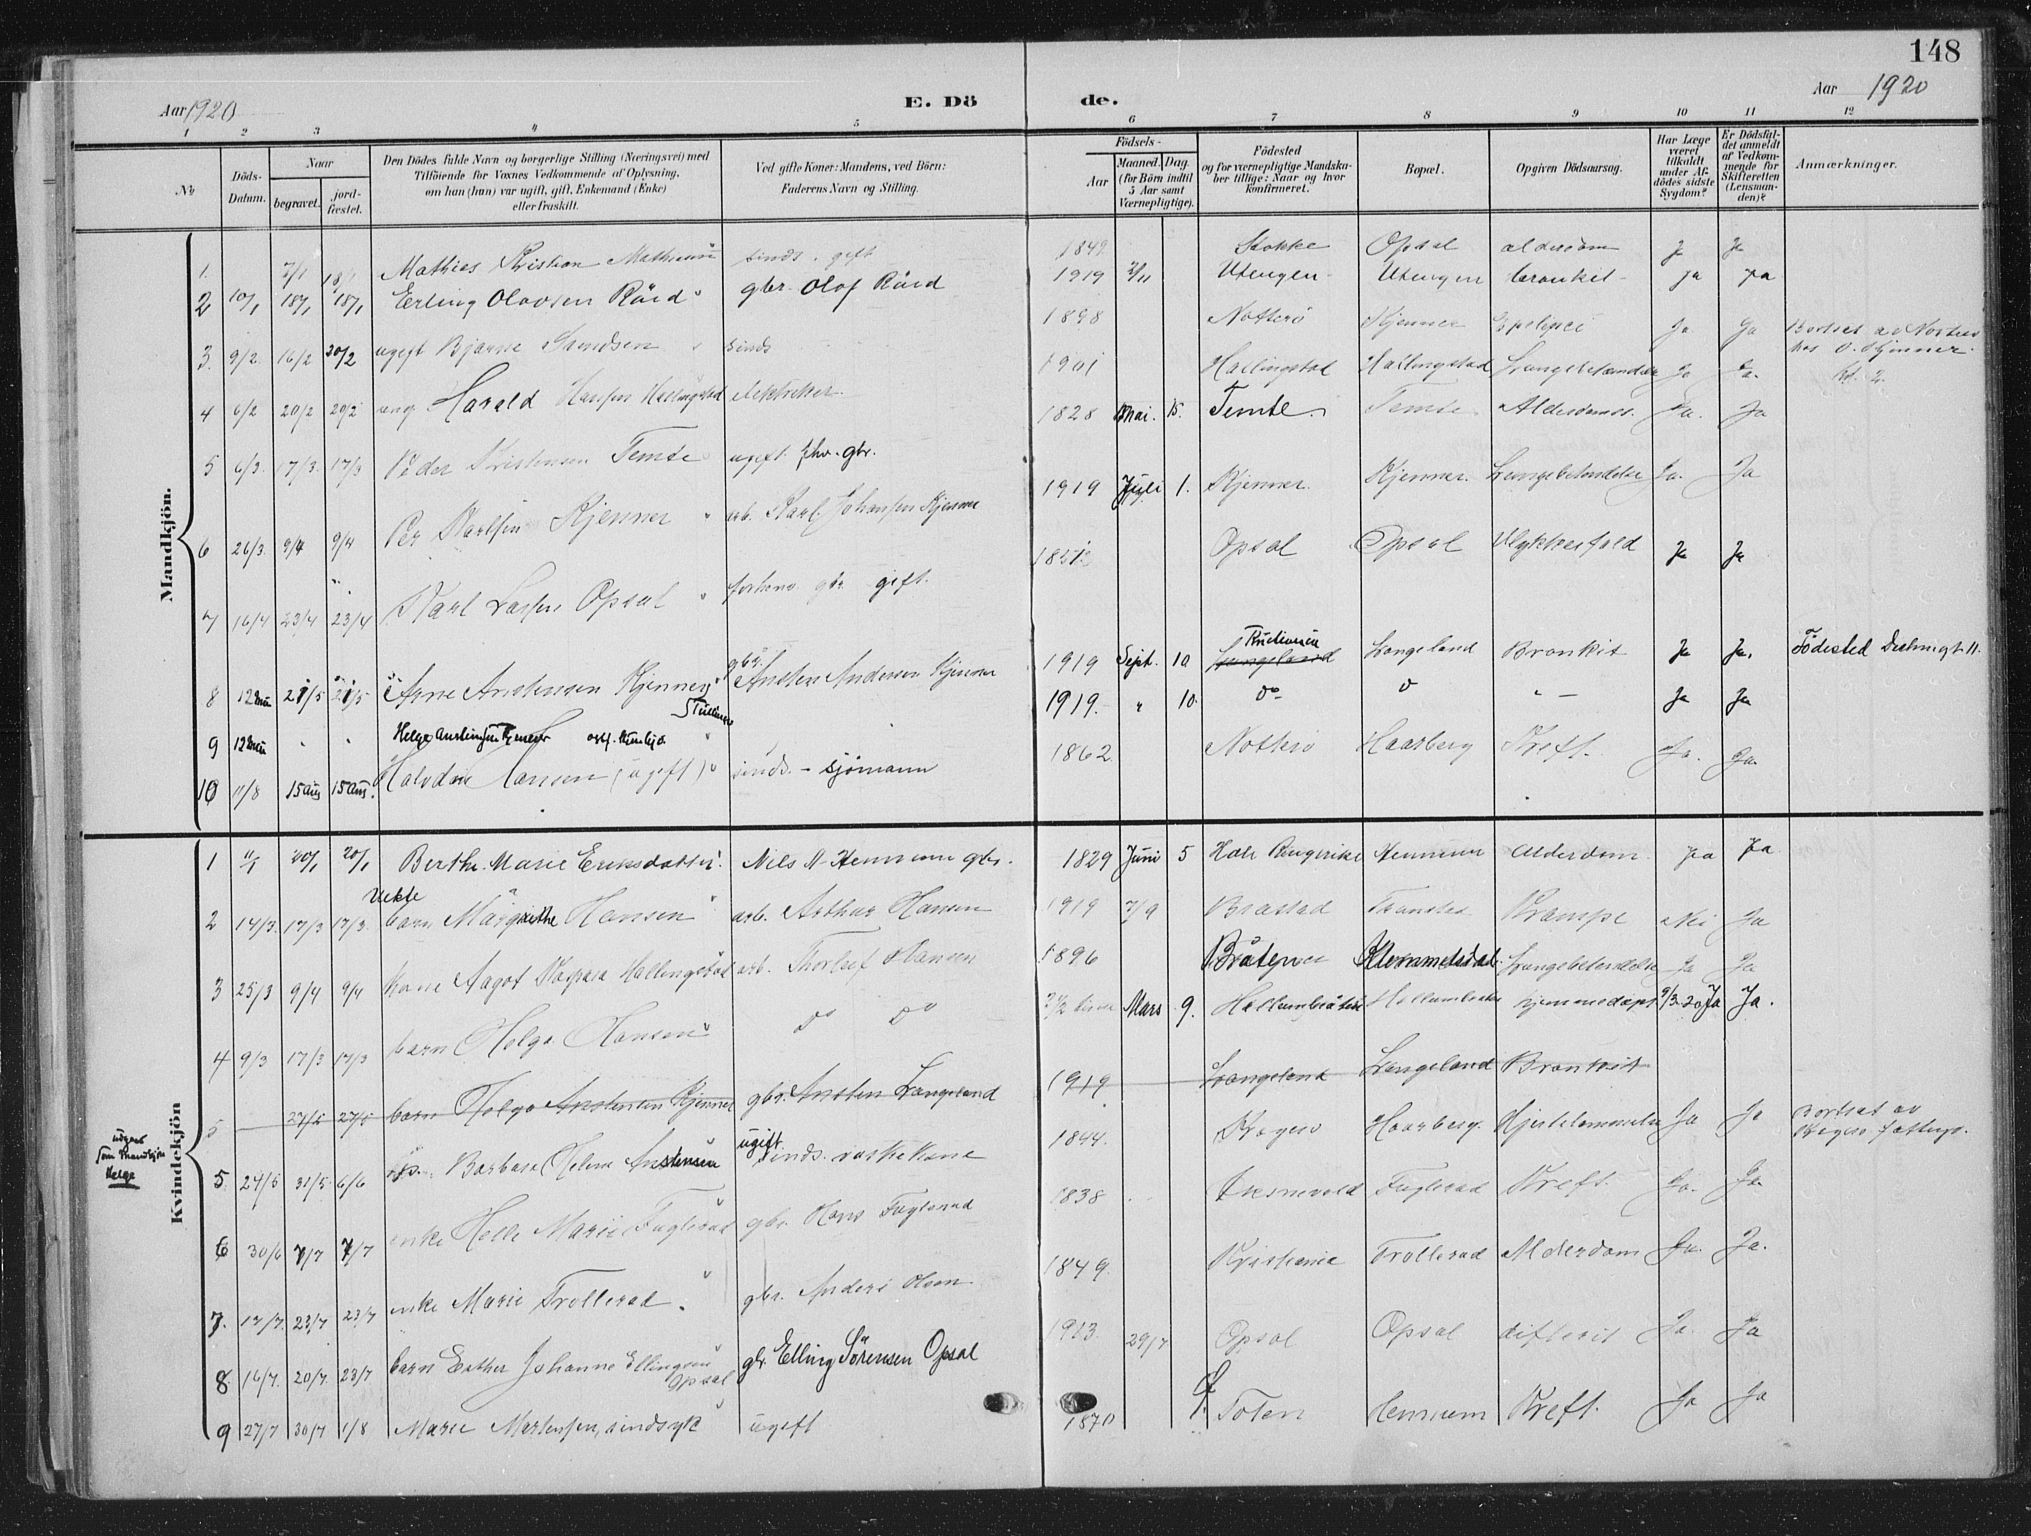 148
Aar 1920
E. Dö
de.
Aar 1920
1 2 3 4 5 6 7 8 9 10 11 12
No
Döds-Datum.
Naar
begravet.
jord-fæstet.
Den Dödes fulde Navn og borgerlige Stilling (Næringsvei) med
Tilföiende for Voxnes Vedkommende af Oplysning,
om han (hun) var ugift, gift, Enkemand (Enke)
eller fraskilt.
Ved gifte Koner: Mandens, ved Börn:
Faderens Navn og Stilling.
Födsels-
Aar
Maaned. Dag.
(for Börn indtil
5 Aar samt
Værnepligtige).
Födested
og for værnepligtige Mandska-
ber tillige: Naar og hvor
konfirmeret.
Bopæl.
Opgiven Dödsaarsag.
Har Læge
været
tilkaldt
under Af-
dödes sidste
Sygdom?
Er Dödsfal-
det anmeldt
af Vedkom-
mende for
Skifteretten
(Lensman-
den)?
Anmærkninger.
Mandkjön.
1. 7/1 18/1 Mathies Kristian sinds. gift 1849 Stokke Opsal alderdom Ja Ja
2 10/1 18/1 18/1 Erling Olavsen Röed gbr. Olof Röed 1919 2/11 Utengen Utengen bronkit Ja Ja
3. 9/2. 16/2 20/2 ugift Bjarne sinds 1898 Notterö Kjenner Epelipsi Ja Ja Bortsat av hos O. Kjenner.
4 6/2 20/2 20/2 ung. Harald Hansen Hallingstad elektriker. 1901 Hallingstad Hallingstad Ja Ja.
5 6/3. 17/3. 17/3 Peder Kristensen Temte ugift fhv. gbr. 1828 Mai. 15. Temte Temte Alderdomss. Ja. Ja
6 26/3. 9/4 9/4 Per Karlsen Kjenner arb. Karl Johansen Kjenner 1919 Juli 1. Kjenner. Kjenner. Lungebetendelse Ja. Ja
7 16/4 23/4 23/4 Karl Larsen Opsal forhenv gbr gift. Opsal Opsal Ulykkesfald Ja Ja
8 12 mai 21/5 21/5 Arne Anstensen Kjenner gbr. Ansten Andersen Kjenner 1919 Sept. 10 Langeland Langeland Bronkit Ja Ja. Födested
9 12 mai " " Helge 1919. " 10. do do " — Ja Ja
10 11/8 15 Aug 15 Aug. Halvdan Hansen (ugift) sinds. - sjømann 1862 Notterö Haarberg Kreft. Ja. Ja.
Kvindekjön
1 11/1 20/1 20/1 Berthe Marie Eriksdatter Nils N. Hennum gbr. 1829 Juni 5 Hole Ringerike Hennum Alderdom Ja Ja.
2 14/3. 17/3 17/3. barn Margrethe Hansen arb. Arthur Hansen 1919 7/9 Brastad Krampe Nei Ja
3 25/3 9/4 9/4 kone Aagot Hallingstad arb. Thorleif Hansen 1896 Bråten Klemmetsdal Lungebetendelse Ja Ja
4 9/3 17/3 17/3 barn Helga Hansen do do Mars 9. Hallumbråten Hallumbråten hjemmedøpt 9/3 20 Ja Ja.
5 27/5 27/5 barn Helga Anstensen Kjenner gbr. Ansten Langeland 1919 Langeland Langeland Bronkit
udgaar som Mandkjön Helge
5. 24/5 31/5 6/6 Barbara Helene Anstensen ugift sinds. vaskekone 1844. Kragerø Haarberg. Hjertelammelse Ja Ja Bortsat av Kragerø fattigv.
6 30/6 7/7 7/7 enke Helle Marie Fuglerud gbr. Hans Fuglerud 1838 Fuglerud Kreft. Ja. Ja.
7. 17/7. 23/7 23/7 enke Marie Trollerud. gbr. Anders Olsen 1849. Kristiania Trollerud Alderdom Ja. Ja.
8. 16/7. 20/7. 23/7 barn Esther Johanne Ellingsen Opsal gbr. Elling Sørensen Opsal 1913. 29/7 Opsal Opsal difterit Ja. Ja
9 27/7 30/7 1/8 Marie Mortensen, sindsyk ugift 1870 Ø. Toten Hennum Kreft. Ja Ja